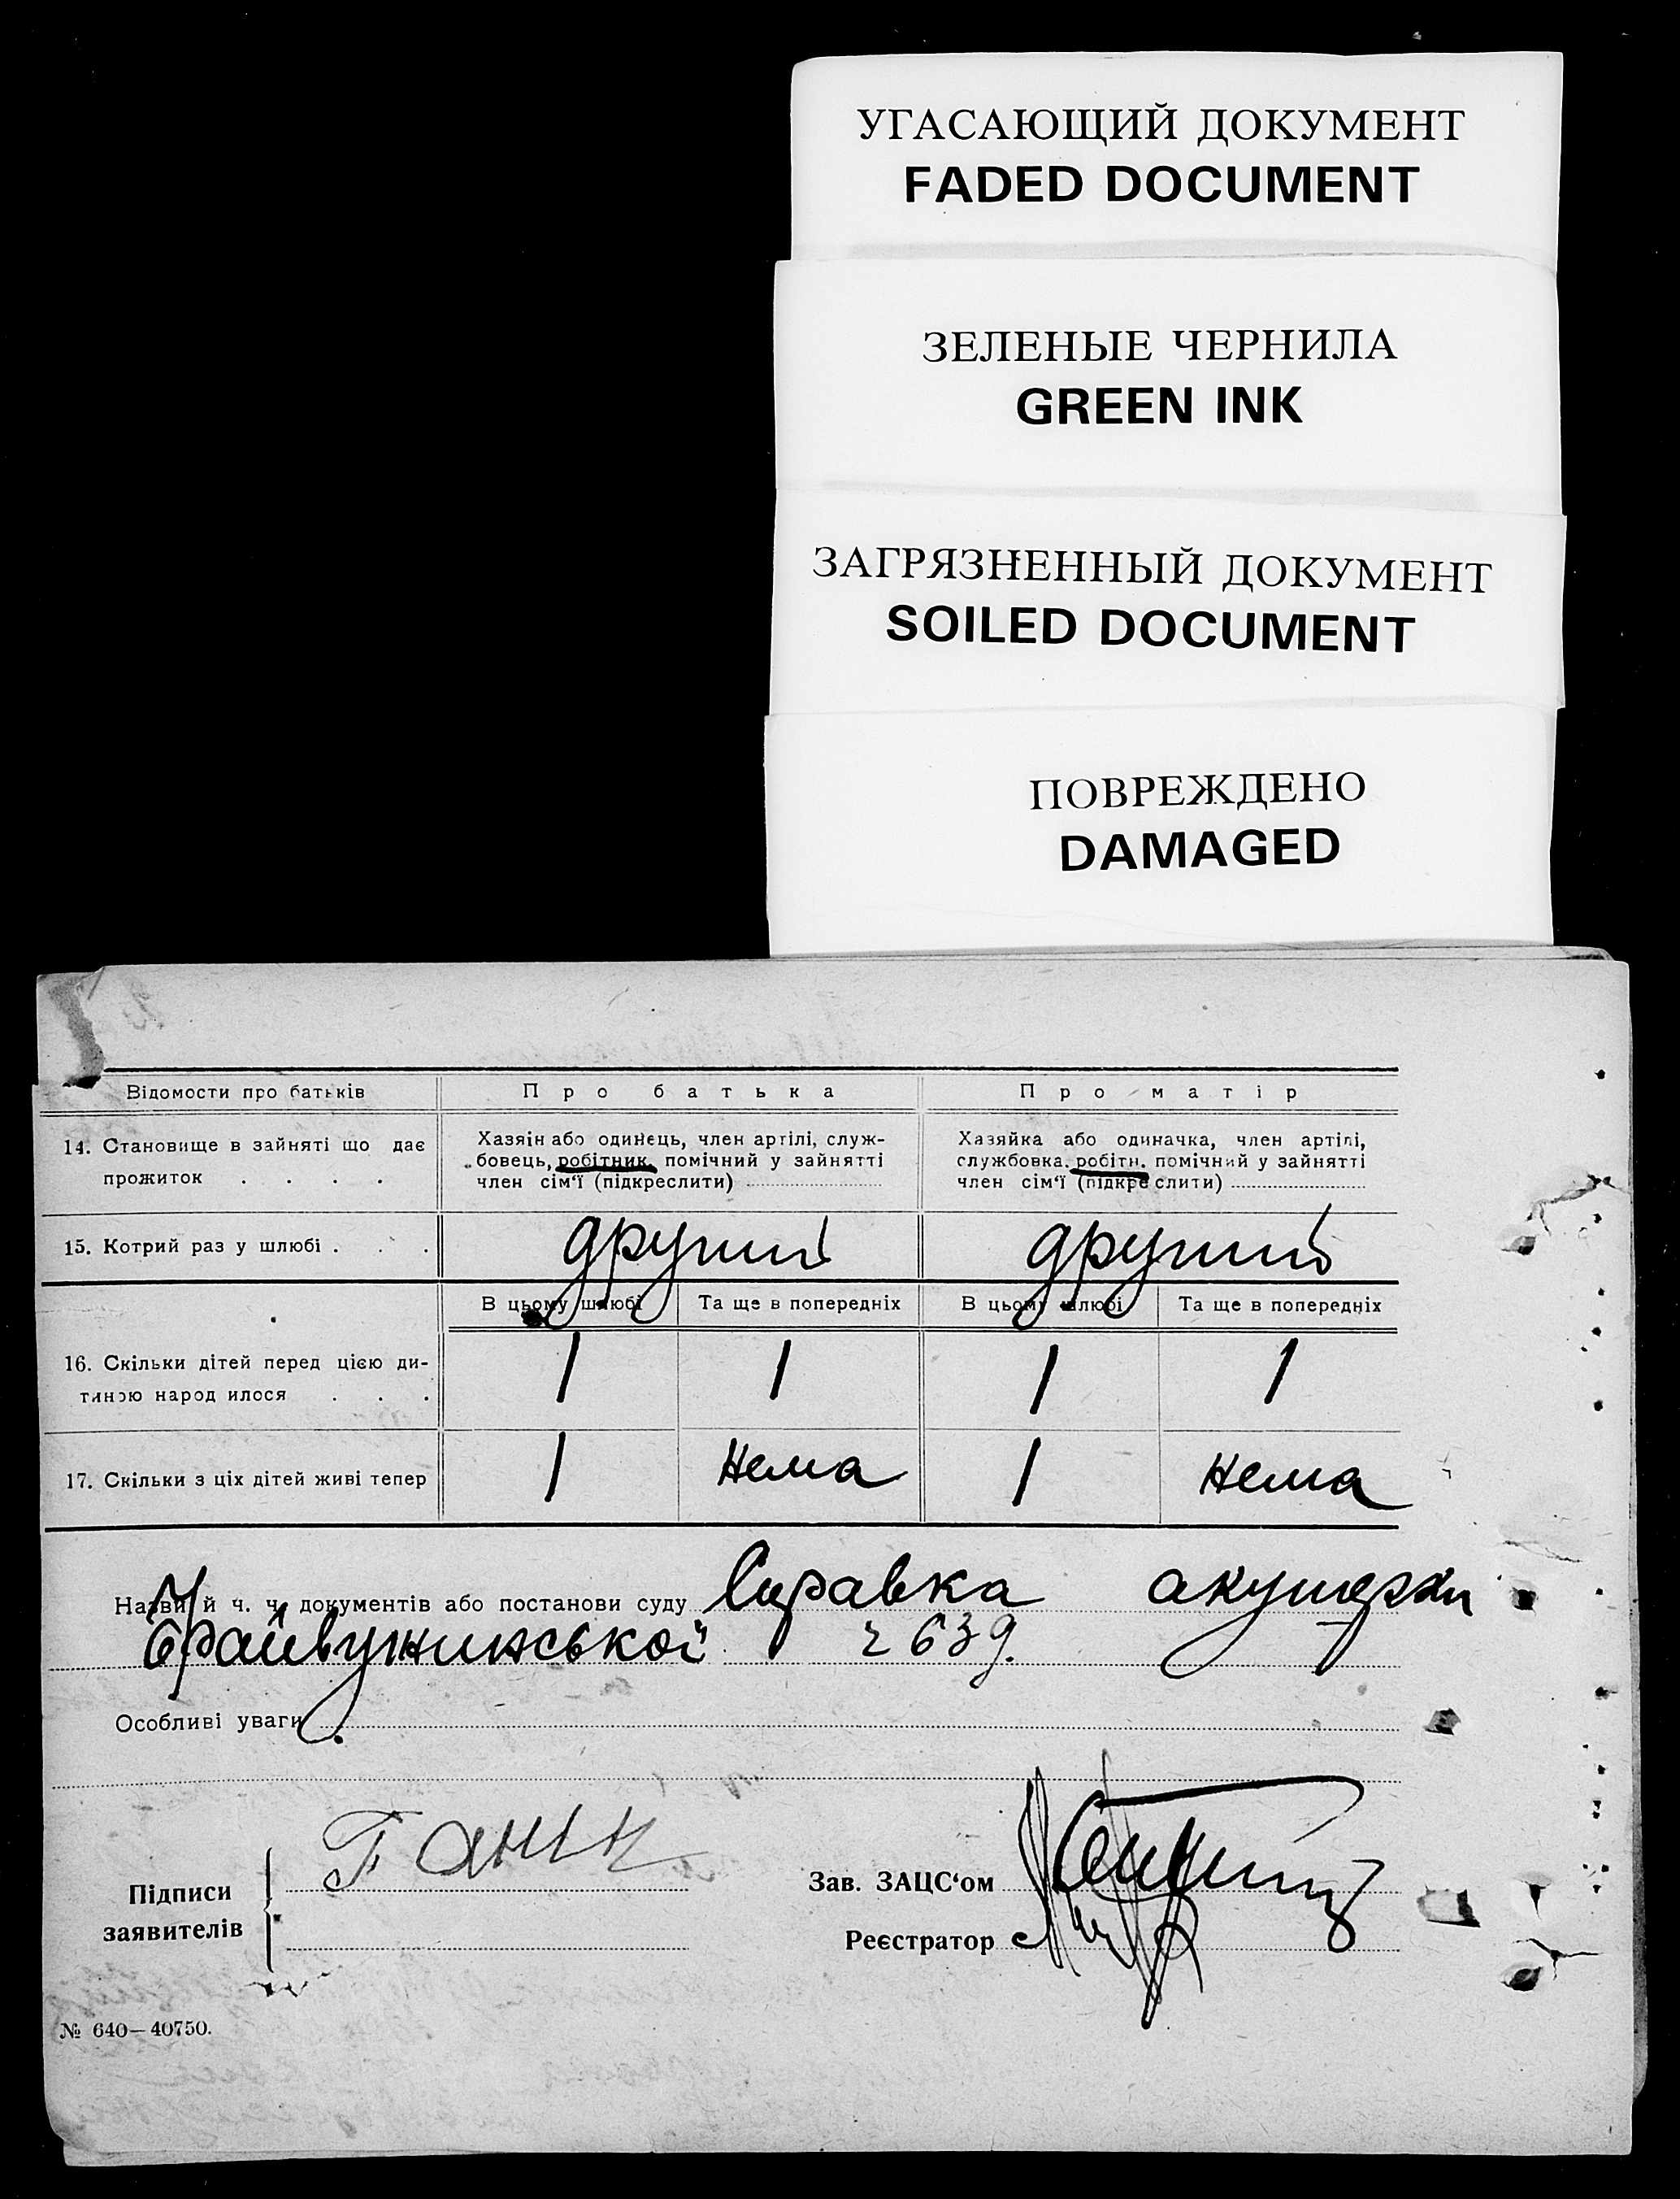 УГАСАЮЩИЙ ДОКУМЕНТ
FADED DOCUMENT
ЗЕЛЕНЫЕ ЧЕРНИЛА
GREEN INK
ЗАГРЯЗНЕННЫЙ ДОКУМЕНТ
SOILED DOCUMENT
ПОВРЕЖДЕНО
DAMAGED
Відомости про батьків Про батька Про матір
14. Становище в зайняті що дає прожиток . . . .
Хазяін або одинець, член артілі, служ-
бовець, робітник, помічний у зайнятті
член сім‘ї (підкреслити)
Хазяйка або одиначка, член артілі,
службовка. робітн. помічний у зайнятті
член сім‘ї (підкреслити)
15. Котрий раз у шлюбі . . . другий другий
В цьому шлюбі Та ще в попередніх В цьому шлюбі Та ще в попередніх
16. Скільки дітей перед цією ди-
тиною народилося . . . 1 1 1 1
17. Скільки з ціх дітей живі тепер 1 нема 1 нема
Назви й ч. ч. документів або постанови суду Справка акушерки
ч 639.
Особливі уваги
Підписи
заявителів
Ганін
Зав. ЗАЦС‘ом
Реєстратор
№ 640—40750.